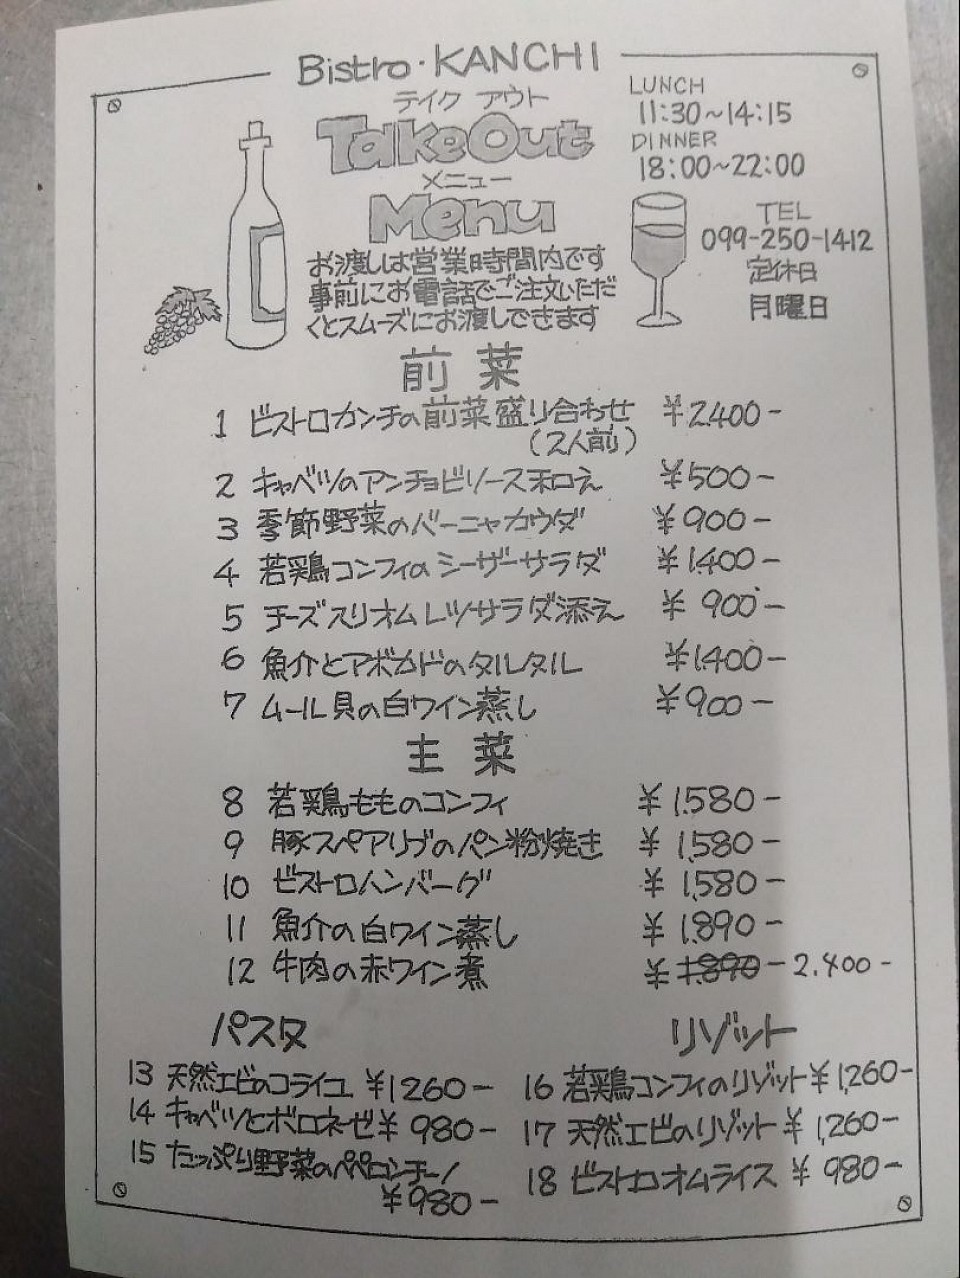 Bistro・KANCHI
テイク アウト
Take Out
メニュー
Menu
LUNCH
11:30〜14:15
DINNER
18:00〜22:00
TEL
099-250-1412
定休日
月曜日
お渡しは営業時間内です
事前にお電話でご注文いただ
くとスムーズにお渡しできます
前菜
1 ビストロカンチの前菜盛り合わせ ¥2.400-
(2人前)
2 キャベツのアンチョビソース和え ¥500-
3 季節野菜のバーニャカウダ ¥900-
4 若鶏コンフィのシーザーサラダ ¥1.400-
5 チーズスリオムレツサラダ添え ¥900-
6 魚介とアボカドのタルタル ¥1.400-
7 ムール貝の白ワイン蒸し ¥900-
主菜
8 若鶏もものコンフィ ¥1.580-
9 豚スペアリブのパン粉焼き ¥1.580-
10 ビストロハンバーグ ¥1.580-
11 魚介の白ワイン蒸し ¥1.890-
12 牛肉の赤ワイン煮 ¥1.890-2.400-
パスタ
13 天然エビのコライユ ¥1260-
14 キャベツとボロネーゼ ¥980-
15 たっぷり野菜のペペロンチーノ
¥980-
リゾット
16 若鶏コンフィのリゾット ¥1,260-
17 天然エビのリゾット ¥1,260-
18 ビストロオムライス ¥980-